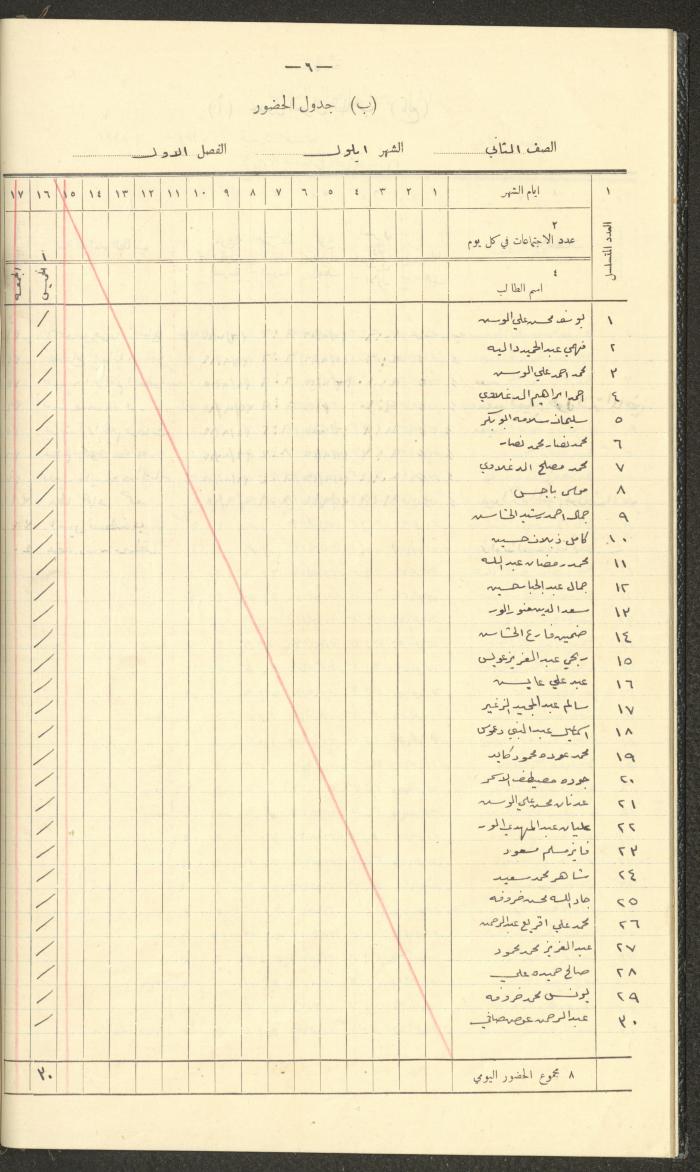 — ٦ —
(ب) جدول الحضور
الصف الثاني الشهر ايلول الفصل الاول
١ ايام الشهر ١ ٢ ٣ ٤ ٥ ٦ ٧ ٨ ٩ ١٠ ١١ ١٢ ١٣ ١٤ ١٥ ١٦ ١٧
العدد المتسلسل
٢
عدد الاجتماعات في كل يوم
٤
اسم الطالب الخميس الجمعة
١ يوسف محسن علي
٢ فهمي عبد الحميد دالية
٣ محمد احمد علي
٤ احمد ابراهيم
٥ سليمان سلامه ابو بكر
٦ محمد نصار محمد نصار
٧ محمد مصلح
٨ موسى باجس
٩ جمال احمد رشيد
١٠ كامل ذيلان حسين
١١ محمد رمضان عبد الله
١٢ جمال عبد الجبار حسين
١٣ سعد الدين
١٤ فارع
١٥ ربحي عبد العزيز عويس
١٦ عبد علي
١٧ سالم عبد المجيد الزغير
١٨ عبد النبي
١٩ محمد عوده محمود كايد
٢٠ جوده مصطفى الاسمر
٢١ عدنان محسن علي
٢٢ عليان عبد المهدي
٢٣ فايز مسلم مسعود
٢٤ شاهر محمد سعيد
٢٥ جاد الله محسن خروفه
٢٦ محمد علي اقريع عبد الرحمن
٢٧ عبد العزيز محمد محمود
٢٨ صالح حميده علي
٢٩ يونس محمد خروفه
٣٠ عبد الرحمن عوض صافي
٨ مجموع الحضور اليومي ٣٠